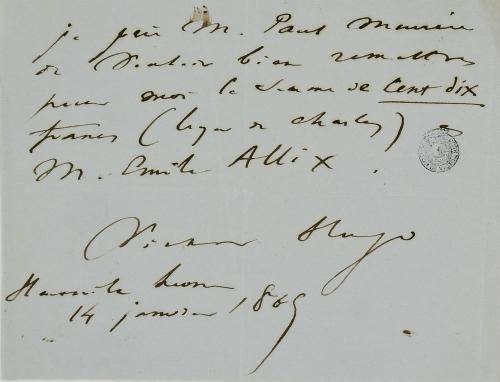 je prie M. Paul Meurice
de vouloir bien remettre
pour moi la somme de cent dix
francs ( de Charles) à
M. Emile Allix.
Victor Hugo
Hauteville house
14 janvier